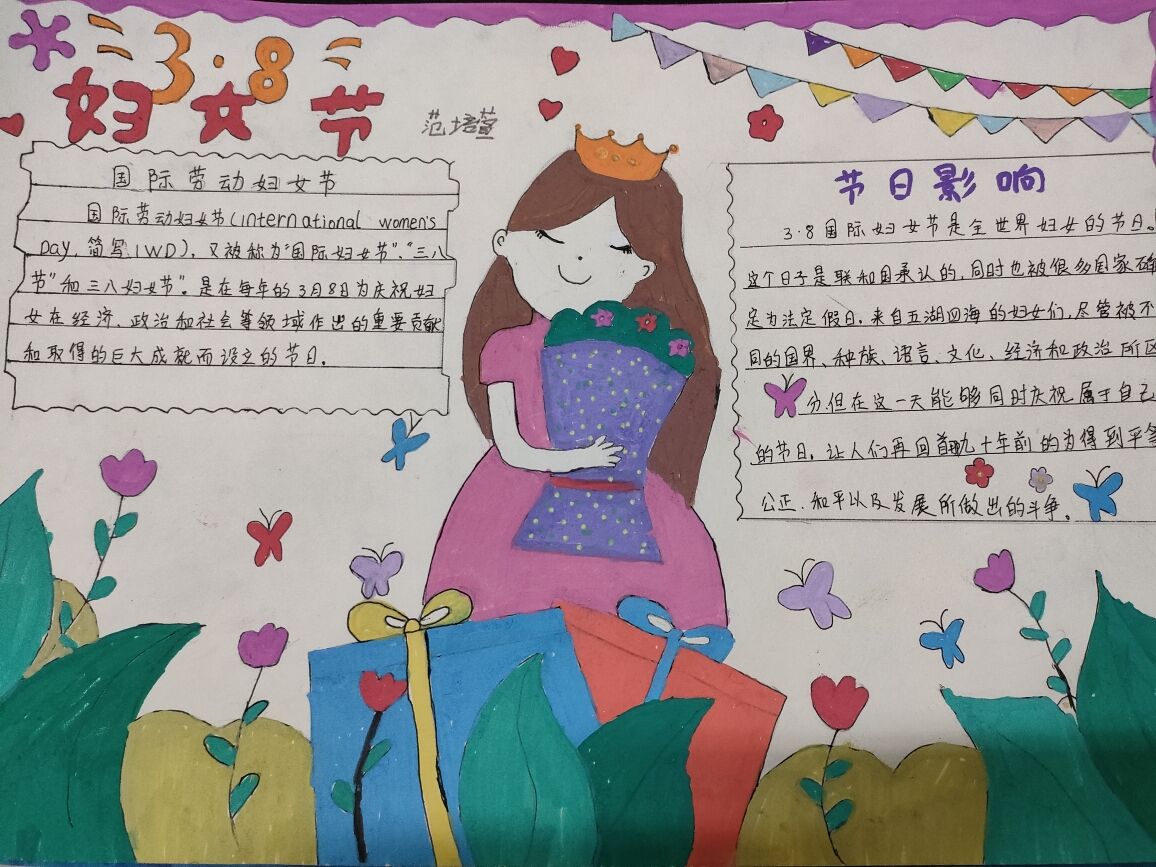 3·8
妇女节
范培萱
国际劳动妇女节
国际劳动妇女节(international women's
Day,简写IWD),又被称为“国际妇女节”、“三八
节”和三八妇女节”。是在每年的3月8日为庆祝妇
女在经济、政治和社会等领域作出的重要贡献
和取得的巨大成就而设立的节日。
节日影响
3·8国际妇女节是全世界妇女的节日。
这个日子是联和国承认的,同时也被很多国家确
定为法定假日。来自五湖四海的妇女们,尽管被不
同的国界、种族、语言、文化、经济和政治所区
分但在这一天能够同时庆祝属于自己
的节日。让人们再回首九十年前的为得到平等
公正、和平以及发展所做出的斗争。